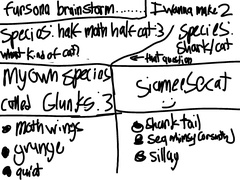 Fursona brainstorm........
I wanna make 2
Species: half moth half cat :3
what kind of cat?
Species:
Shark/cat
← that question
My own species
called Glunks :3
siamese cat
:)
• moth wings
• grunge
• quiet
• Shark tail
• sea mimsy
• sillay